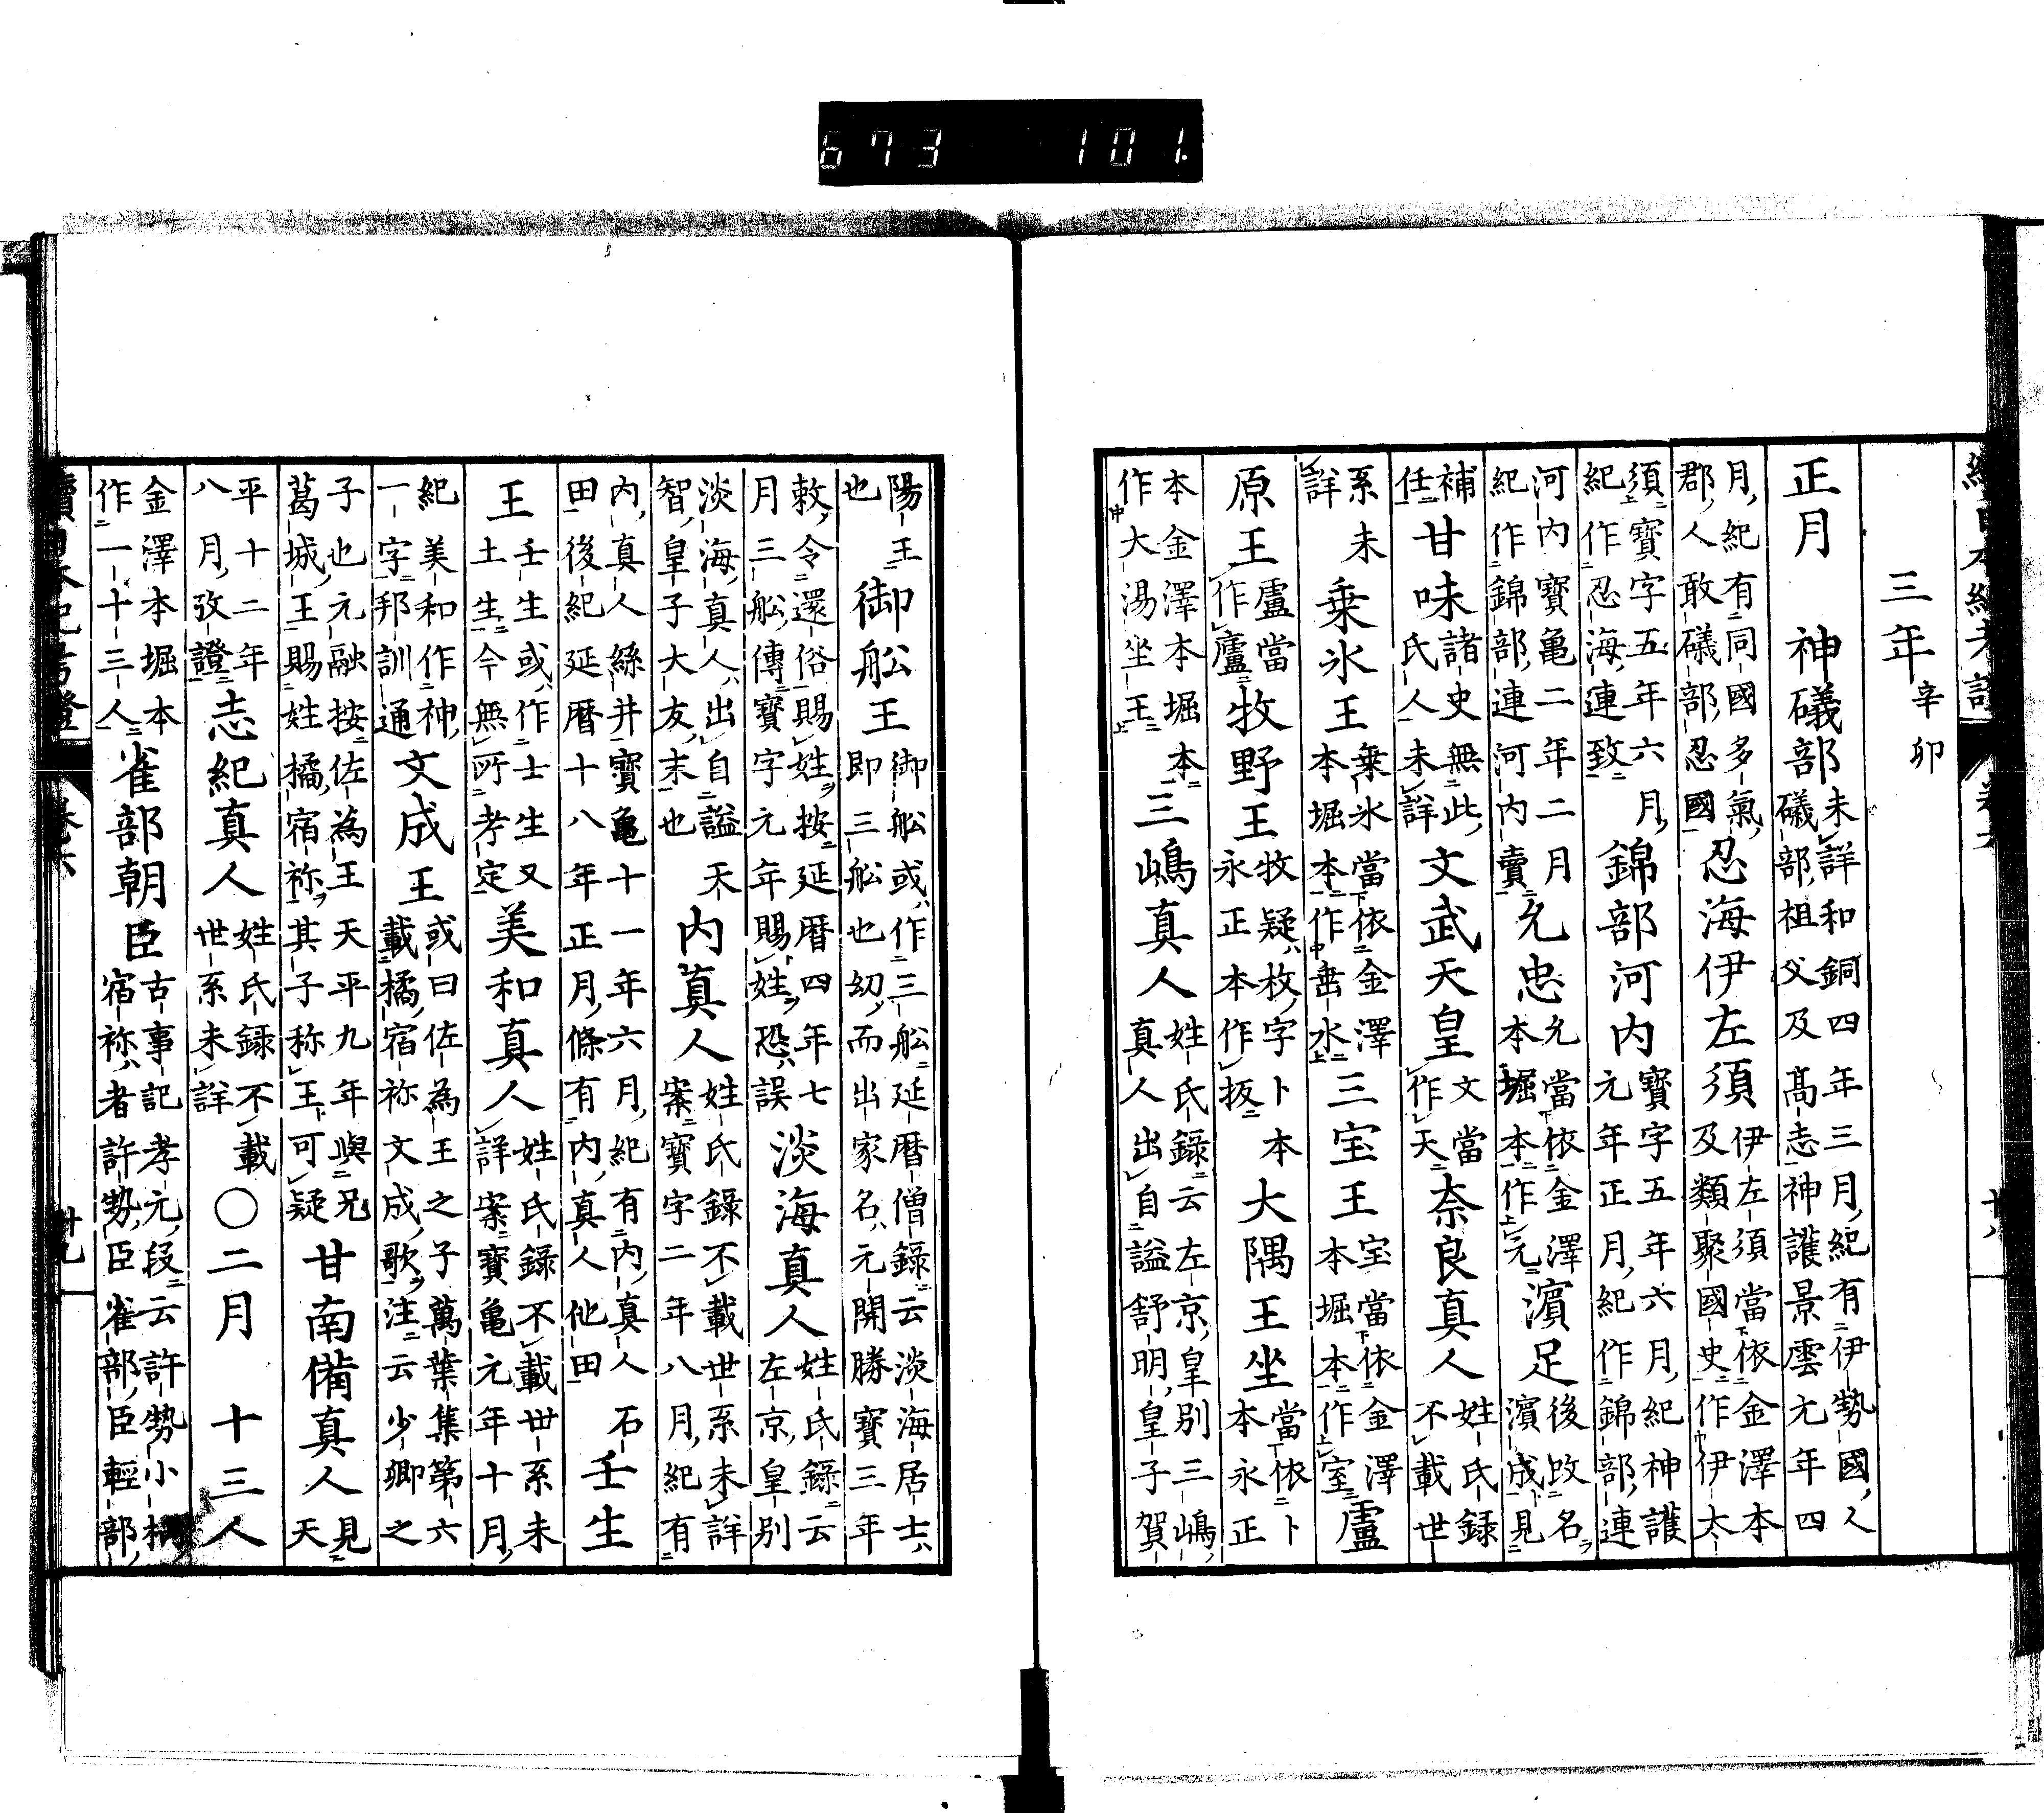 673 101.
三年辛卯
正月 神礒部未詳和銅四年三月紀有伊勢國人礒部祖父及高志神護景雲元年四
月紀有同國多氣郡人敢礒部忍國忍海伊左須伊左須當依金澤本及類聚國史作伊太
須寶字五年六月紀作忍海連致錦部河内寶字五年六月紀神護元年正月紀作錦部連
河内寶亀二年二月紀作錦部連河内賣允忠允當依金澤本堀本作元濱足後改名濱成見
補任甘味諸史無此氏人未詳文武天皇文當作天奈良真人姓氏録不載世
系未詳乗氷王乗氷當依金澤本堀本作垂水三宝王宝當依金澤本堀本作室盧
原王盧當作廬牧野王牧疑枚字卜本永正本作扳大隅王坐當依卜本永正
本金澤本堀本作大湯坐王三嶋真人姓氏録云左京皇別三嶋真人出自謚舒明皇子賀
陽王也御舩王御舩或作三舩延暦僧録云淡海居士即三舩也幼而出家名元開勝寶三年
敕令還俗賜姓按延暦四年七月三舩傳寶字元年賜姓恐誤淡海真人姓氏録云左京皇別
淡海真人出自謚天智皇子大友末也内真人姓氏録不載世系未詳案寶字二年八月紀有
内真人絲井寶亀十一年六月紀有内真人石田後紀延暦十八年正月條有内真人他田壬生
王壬生或作士生又土生今無所考定美和真人姓氏録不載世系未詳案寶亀元年十月
紀美和作神一字邦訓通文成王或曰佐為王之子萬葉集第六載橘宿祢文成歌注云少卿之
子也元融按佐為王天平九年與兄葛城王賜姓橘宿祢其子称王可疑甘南備真人見天
平十二年八月攷證志紀真人姓氏録不載世系未詳○二月 十三人
金澤本堀本作一十三人雀部朝臣古事記孝元段云許勢小柄宿祢者許勢臣雀部臣軽部